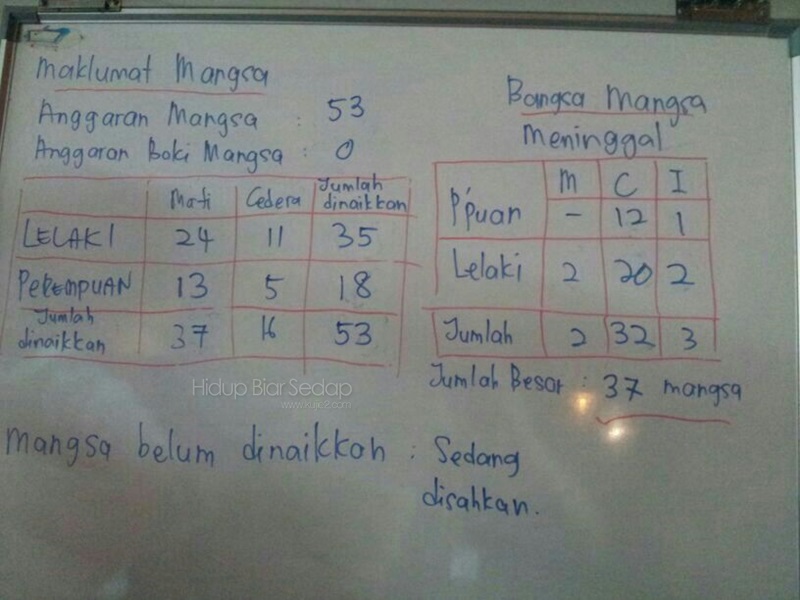 Maklumat Mangsa
Anggaran Mangsa : 53
Anggaran Baki Mangsa : 0
Mati Cedera Jumlah dinaikkan
LELAKI 24 11 35
PEREMPUAN 13 5 18
Jumlah dinaikkan 37 16 53
Bangsa Mangsa
Meninggal
M C I
P'puan - 12 1
Lelaki 2 20 2
Jumlah 2 32 3
Jumlah Besar : 37 mangsa
Hidup Biar Sedap
Mangsa belum dinaikkan : Sedang
disahkan.